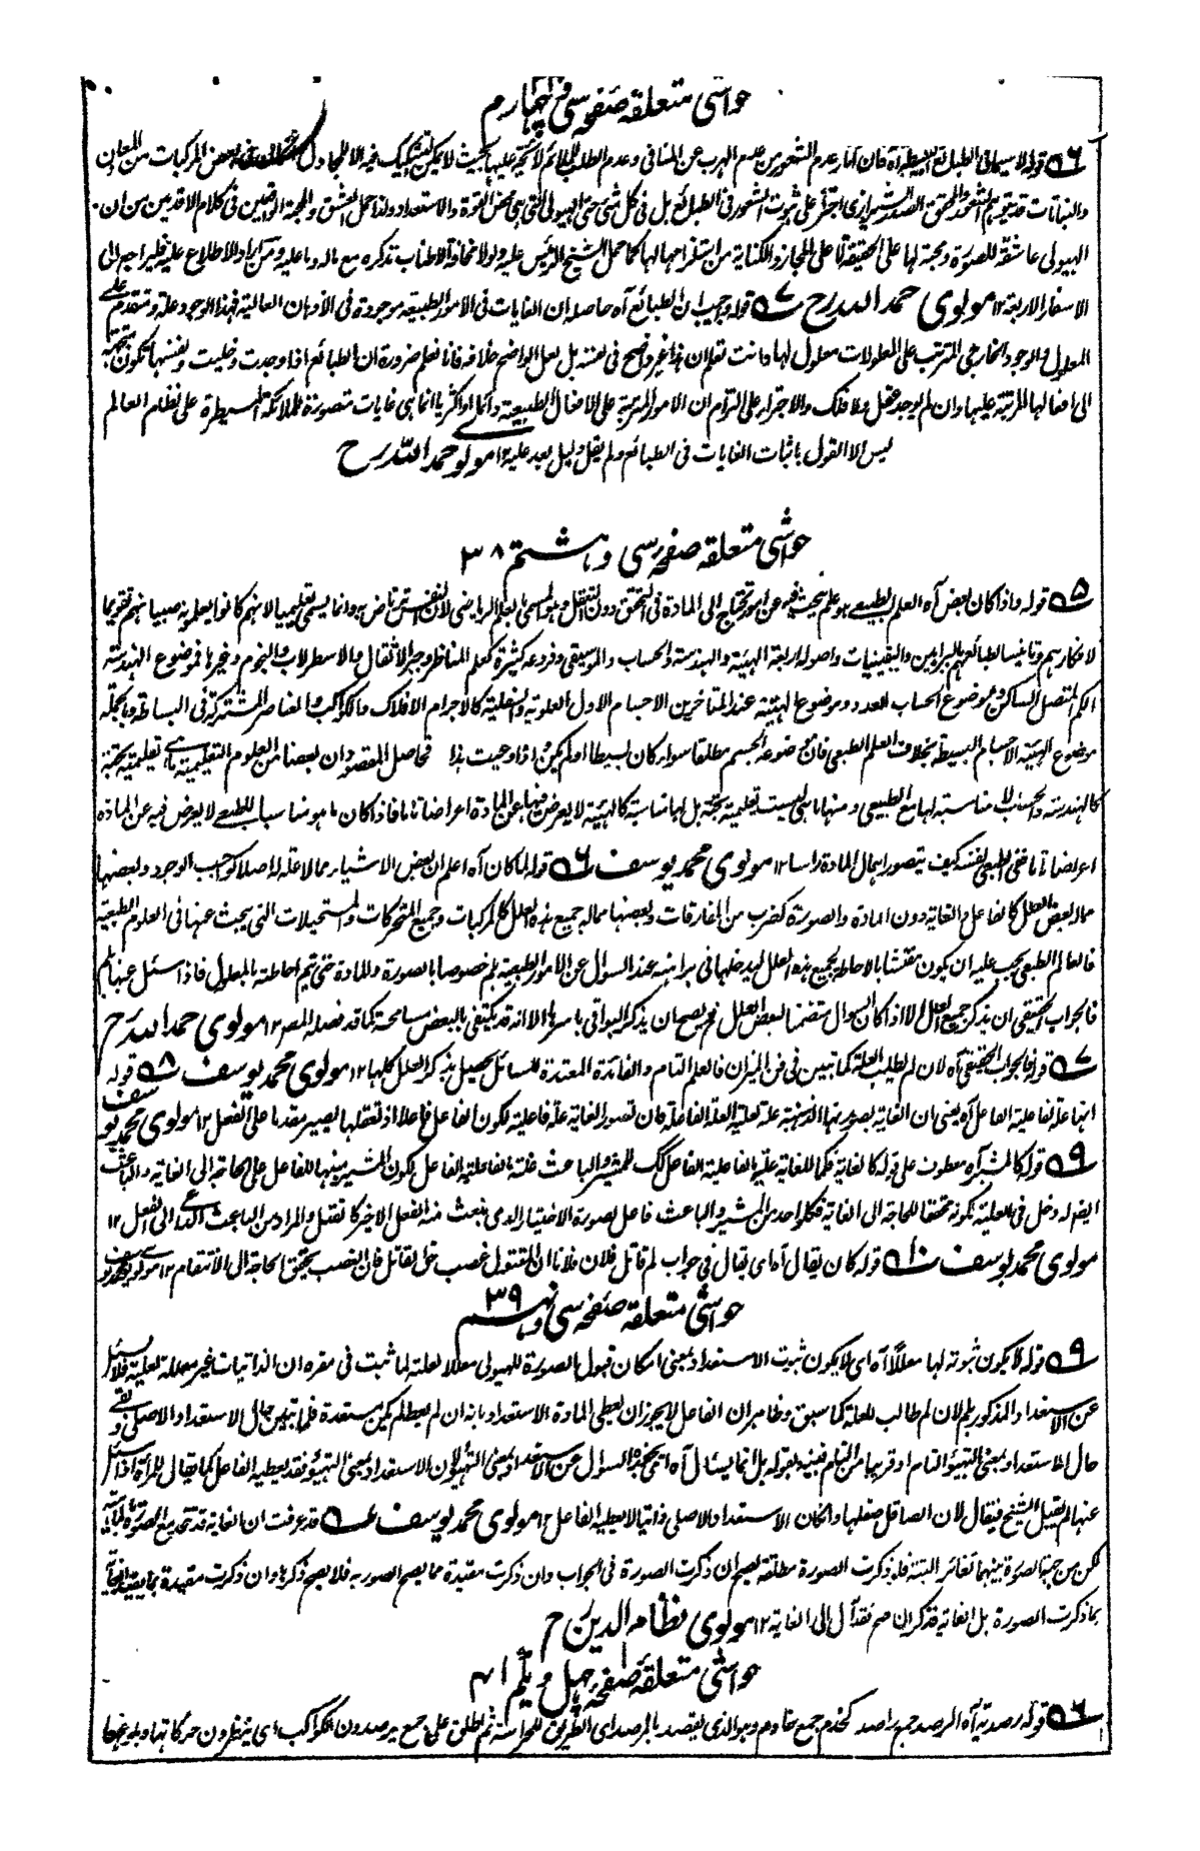 حواشی متعلقه صفحه سی و چهارم
۵۶ قوله لا سيما فى الطبائع البسيطة آه فان آثار عدم الشعور من عدم الهرب عن المنافى وعدم الطلب للملائم لائحة عليها بحيث لا يمكن تشكيك فيه الا للمجادل بعض المركبات من المعادن
والنباتات قد يتوهم الشعور والمحقق الصدر الشيرازى اجترأ على ثبوت الشعور فى الطبائع بل فى كل شئ حتى الهيولى التى هى محض القوة والاستعداد ولذا حمل العشق والمحبة الواقعين فى كلام الاقدمين من ان
الهيولى عاشقة للصورة ومحبة لها على الحقيقة لا على المجاز والكناية من استلزامها لها كما حمل الشيخ الرئيس عليه ولولا مخافة الاطناب نذكره مع ماله وما عليه ومن اراد الاطلاع عليه فليراجع الى
الاسفار الاربعة ۱۲ مولوى حمد الله رح ۵۷ قوله واجيب ان الطبائع آه حاصله ان الغايات فى الامور الطبيعية موجودة فى الاذهان العالية فهذا الوجود علة ومتقدم على
المعلول والوجود الخارجى المترتب على المعلولات معلول لها وانت تعلم ان هذا غير واضح فى نفسه بل لعل الواضح خلافه فانا نعلم ضرورة ان الطبائع اذا وجدت وخليت ونفسها تكون متجهة
الى افعالها المرتبة عليها وان لم يوجد عقل ولا فلك والاجتراء على التزام ان الامور المترتبة على الافعال الطبيعية دائما او اكثريا انما هى غايات متصورة للملائكة المسيطرة على نظام العالم
ليس الا القول باثبات الغايات فى الطبائع ولم يقل دليل بعد عليه ۱۲ مولوى حمد الله رح
حواشی متعلقه صفحه سی و هشتم ۳۸
۵ قوله واذا كان بعض آه العلم الطبيعى هو علم يبحث فيه عن امور تحتاج الى المادة فى التحقق دون التعقل وهو المسمى بالعلم الرياضى لان النفس ترتاض به وانما يسمى تعليميا لانهم كانوا يعلمونه صبيانهم تقويما
لافكارهم وتانيسا لطبائعهم بالبراهين واليقينيات واصوله اربعة الهيئة والهندسة والحساب والموسيقى وفروعه كثيرة كعلم المناظر وجر الاثقال والاسطرلاب والنجوم وغيرها فموضوع الهندسة
الكم المتصل الساكن وموضوع الحساب العدد وموضوع الهيئة عند المتاخرين الاجسام الاول العلوية والسفلية كالاجرام الافلاك والكواكب والعناصر المشتركة فى البساطة وبالجملة
موضوع الهيئة الاجسام البسيطة بخلاف العلم الطبعى فان موضوعه الجسم مطلقا سواء كان بسيطا اولم يكن واذا وعيت هذا فحاصل المقصود ان بعضا من العلوم التعليمية ما هى تعليمية بحتة
كالهندسة والحساب لا مناسبة لها مع الطبيعى ومنها ما هى ليست تعليمية بحتة بل لها مناسبة كالهيئة لا يعرض فيها عن المادة اعراضا تاما فاذا كان ما هو مناسبا للطبعى لا يعرض فيه عن المادة
اعراضا تاما ففى الطبعى نفسه كيف يتصور اهمال المادة راسا ۱۲ مولوى محمد يوسف ۵۶ قوله لما كان آه اعلم ان بعض الاشياء مما لا علة له اصلا كواجب الوجود وبعضها
مما له بعض العلل كالفاعل والغاية دون المادة والصورة كضرب من المفارقات وبعضها مما له جميع هذه العلل كالمركبات وجميع المتحركات والمستحيلات التى يبحث عنها فى العلوم الطبيعية
فالعالم الطبعى يجب عليه ان يكون مفتشا بالاحاطة لجميع هذه العلل ليدخلها فى براهينه عند السؤال عن الامور الطبيعية بلم خصوصا بالصورة والمادة حتى يتم احاطته بالمعلول فاذا سئل عنها بلم
فالجواب الحقيقى ان يذكر جميع العلل الا اذا كان السوال متضمنا لبعض العلل فح يصح ان يذكر البواقى باسرها الا انه قد يكتفى بالبعض مسامحة كما قد فصله المصر ۱۲ مولوى حمد الله رح
۵۷ قوله فالجواب الحقيقى آه لان لم لطلب العلة كما تبين فى فن الميزان فالعلم التام والفائدة المعتدة للسائل يحصل بذكر العلل كلها ۱۲ مولوى محمد يوسف ۵۸ قوله
انها علة لفاعلية الفاعل آه يعنى ان الغاية بصورتها الذهنية علة لعلية العلة الفاعلة فان تصور الغاية علة فاعلية لكون الفاعل فاعلا اذ تعقلها يصير مقدما على الفعل ۱۲ مولوى محمد يوسف
۵۹ قوله كالمشير آه معطوف على قوله كالغاية فكما للغاية علية لفاعلية الفاعل كك للمشير والباعث علته لفاعلية الفاعل يكون المشير منبها للفاعل على الحاجة الى الغاية والباعث
ايضا له دخل فى العلية لكونه محققا للحاجة الى الغاية فكل واحد من المشير والباعث فاعل لصورة الاختيار الذى ينبعث منه الفعل الاخير كالقتل والمراد من الباعث الداعى الى الفعل ۱۲
مولوى محمد يوسف ۵۱۰ قوله كان يقال آه اى يقال فى جواب لم قاتل فلان فلانا ان المقتول غصب حق القاتل فان الغصب يحقق الحاجة الى الانتقام ۱۲ مولوى محمد يوسف
حواشی متعلقه صفحه سی و نهم ۳۹
۵۹ قوله لا يكون ثبوته لها معللا آه اى لا يكون ثبوت الاستعداد بمعنى امكان قبول الصورة للهيولى معللا لعلة لما ثبت فى مقره ان الذاتيات غير معللة لعلية فلا يسئل
عن الاستعداد المذكور بلم لان لم طالب للعلة كما سبق وظاهر ان الفاعل لا يجوز ان يعطى المادة الاستعداد بانه ان لم يعطه لم يكن مستعدة فلما تبين حال الاستعداد الاصلى وبقى
حال الاستعداد بمعنى التهيؤ التام او قربها من التام فبينه بقوله بل انما يسئل آه اى يجئ هذا السوال عن الاستعداد بمعنى التهيؤ لان الاستعداد بمعنى التهيؤ قد يعطيه الفاعل كما يقال للمرآة اذا سئل
عنها لم يقبل الشبح فيقال لان الصاقل صقلها وانكان الاستعداد الاصلى ذاتيا لا يعطيه الفاعل ۱۲ مولوى محمد يوسف ۵۱۰ قد عرفت ان الغاية قد تتحد مع الصورة
لكن من جهة الصورة بينهما تغائر البتة فلو ذكرت الصورة مطلقة يصح ان ذكرت الصورة فى الجواب وان ذكرت مقيدة مما يصح الصور به فلا يصح ذكرها وان ذكرت مقيدة بما يفيد الغاية
بما ذكرت الصورة بل الغاية قد ذكر ان صح فقد آل الى الغاية ۱۲ مولوى نظام الدين رح
حواشی متعلقه صفحه چهل و یکم ۴۱
۵۶ قوله رصدية آه الرصد جمع راصد كخدم جمع خادم وهو الذى يقصد بالمرصد اى الطريق للحراسة ثم اطلق على جمع يرصدون الكواكب اى ينظرون حركاتها وبلوغها